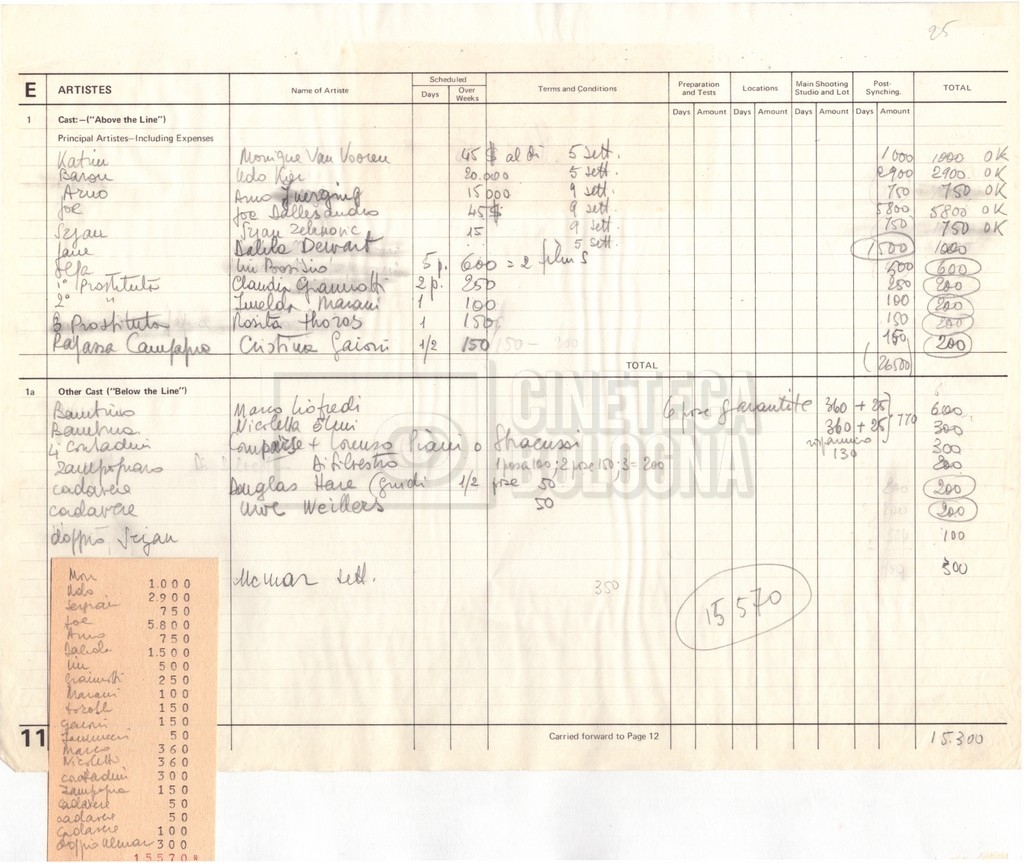 25
E ARTISTES Name of Artiste Scheduled Days Over Weeks Terms and Conditions Preparation and Tests Locations Main Shooting Studio and Lot Post-Synching. TOTAL
Days Amount Days Amount Days Amount Days Amount
1 Cast:—("Above the Line")
Principal Artistes—Including Expenses
Katrin Monique Van Vooren 45 $ al dì 5 sett. 1000 1000 OK
Baron Udo Kier 20.000 5 sett. 2900 2900. OK
Arno Arno Juerging 15000 9 sett. 750 750 OK
Joe Joe Dallesandro 45 $ 9 sett. 5800 5800 OK
Srjan Srjan Zelenovic 15 9 sett. 750 750 OK
Jane Dalila 5 sett. 1500 1000
Liu Bosisio 5 p. 600 = 2 films 500 600
1° Prostituta Claudia Giannotti 2 p. 250 250 200
2° " Imelda Marani 1 100 100 200
3 Prostituta Rosita 1 150 150 200
Ragazza Campagna Cristina Gaioni 1/2 150 150 200
TOTAL 26500
1a Other Cast ("Below the Line")
Bambino Marco Liofredi 6 pose garantite 360 + 25 600
Bambina Nicoletta Elmi 360 + 25 770 300
4 contadini comparse + Lorenzo Piani o 130 300
Zampognaro Di Silvestro 1 posa 100; 2 pose 150; 3 = 200
cadavere Douglas 1/2 pose 50 200
cadavere Uwe 50 200
doppio Srjan 100
sett. 350 300
15570
11 Carried forward to Page 12 15.300
Mon 1.000
Udo 2.900
Serjan 750
Joe 5.800
Arno 750
Dalila 1.500
Liu 500
Giannotti 250
Marani 100
150
Gaioni 150
50
Marco 360
Nicoletta 360
contadini 300
Zampogna 150
cadavere 50
cadavere 50
cadavere 100
doppio 300
15570*
CINETECA
BOLOGNA